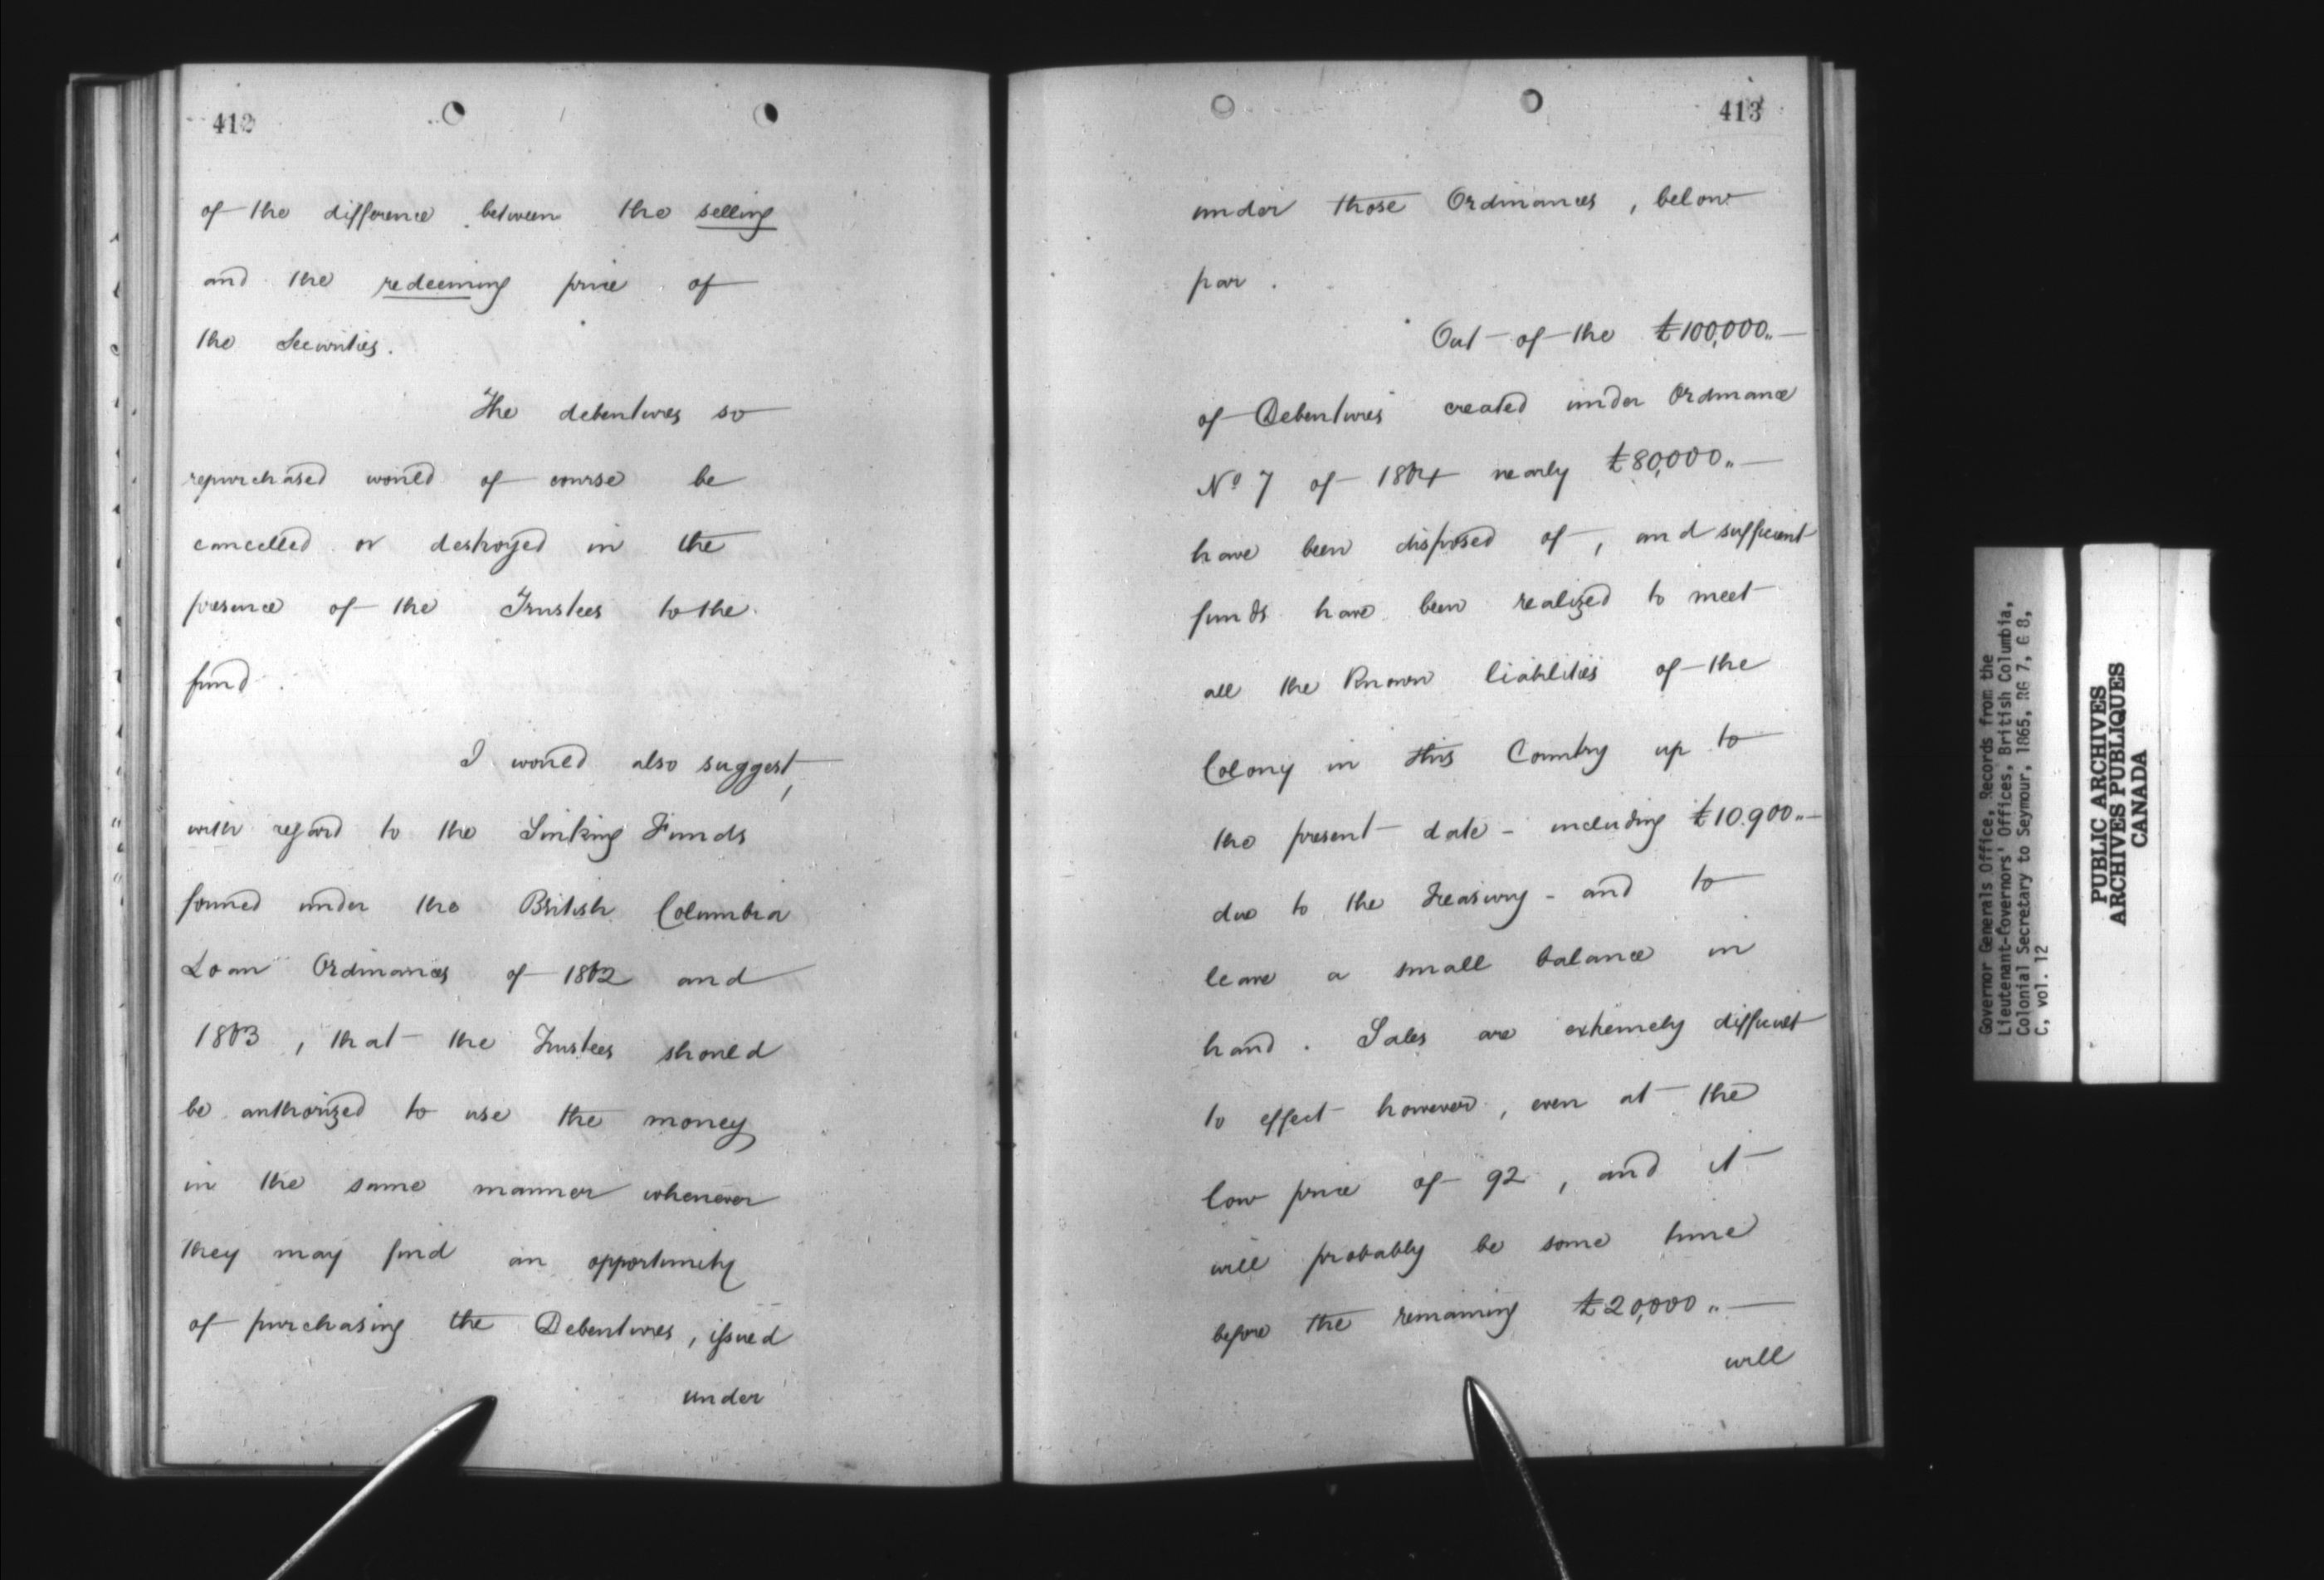 412
of the difference between the selling
and the redeeming price of
the Securities.
The debentures so
repurchased would of course be
cancelled or destroyed in the
presence of the Trustees to the
fund.
I would also suggest,
with regard to the Sinking Funds
formed under the British Columbia
Loan Ordinances of 1862 and
1863, that the Trustees should
be authorized to use the money
in the same manner whenever
they may find an opportunity
of purchasing the Debentures, issued
under
413
under those Ordinances, below
par.
Out of the £100,000..
of Debentures created under Ordinance
No 7 of 1864 nearly £80,000..
have been disposed of, and sufficient
funds have been realized to meet
all the Known liabilities of the
Colony in this Country up to
the present date - including £10.900..
due to the Treasury - and to
leave a small balance in
hand. Sales are extremely difficult
to effect however, even at the
low price of 92, and it
will probably be some time
before the remaining £20,000..
will
Governor Generals Office, Records from the
Lieutenant-Governors' Offices, British Columbia,
Colonial Secretary to Seymour, 1865, RG 7, G 8,
C, vol. 12
PUBLIC ARCHIVES
ARCHIVES PUBLIQUES
CANADA